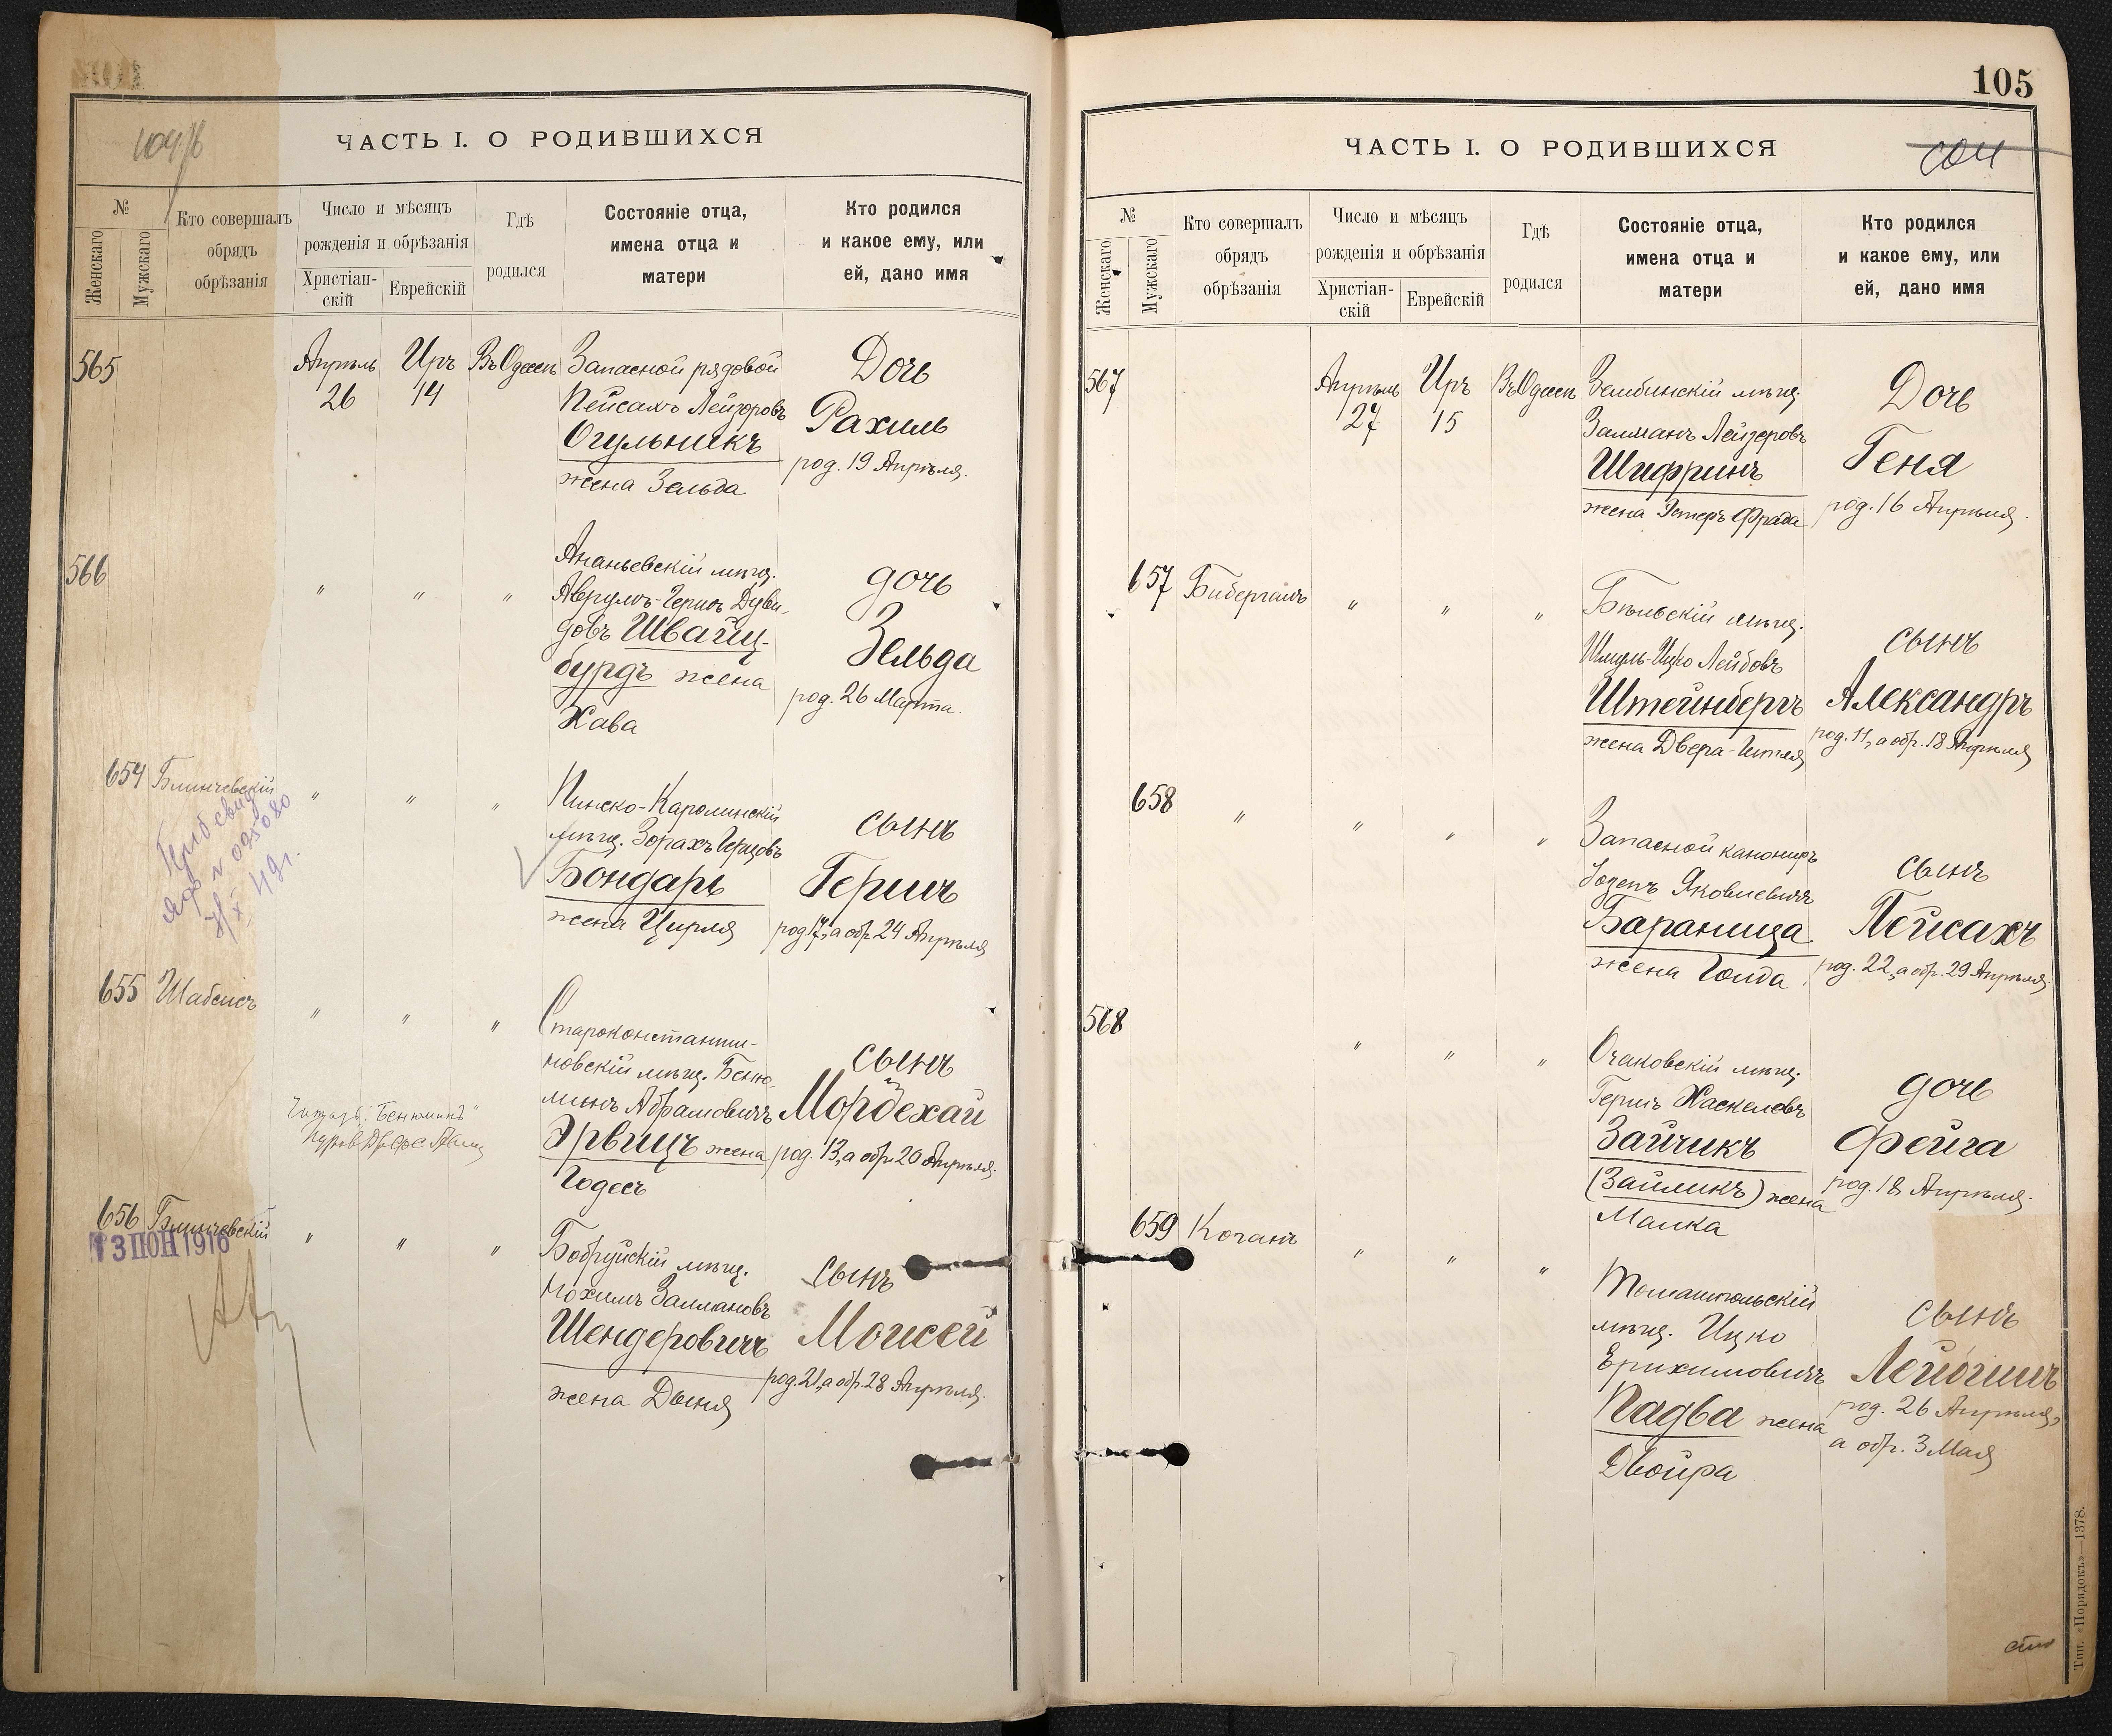 104/б
ЧАСТЬ I. О РОДИВШИХСЯ
№
Женскаго
Мужскаго
Кто совершалъ
обрядъ
обрѣзанія
Число и мѣсяцъ
рожденія и обрѣзанія
Христіан-
скій
Еврейскій
Гдѣ
родился
Состояніе отца,
имена отца и
матери
Кто родился
и какое ему, или
ей, дано имя
565
Апрѣль
26
Иръ
14
Въ Одессѣ
Запасной рядовой
Пейсахъ Лейзоровъ
Огульникъ
жена Зельда
Дочь
Рахиль
род. 19 Апрѣля.
566
" " "
Ананьевскій мѣщ.
Аврумъ-Гершъ Дуви-
довъ Швайц-
бурдъ жена
Хава
дочь
Зельда
род. 26 Марта.
654 Блинчевскій
" " "
Пинско-Каролинскій
мѣщ. Зорахъ Герцовъ
Бондарь
жена Цирля
сынъ
Гершъ
род. 17, а обр. 24 Апрѣля
655 Шабсисъ
" " "
Староконстанти-
новскій мѣщ. Беню-
минъ Абрамовичъ
Эрвицъ жена
Годесъ
сынъ
Мордехай
род. 13, а обр. 20 Апрѣля.
"Бенюминъ"
656 Блинчевскій
13 ІЮН 1916
" " "
Бобруйскій мѣщ.
Нохимъ Залмановъ
Шендеровичъ
жена Двыня
сынъ
Моисей
род. 21, а обр. 28 Апрѣля.
105
ЧАСТЬ I. О РОДИВШИХСЯ
№
Женскаго
Мужскаго
Кто совершалъ
обрядъ
обрѣзанія
Число и мѣсяцъ
рожденія и обрѣзанія
Христіан-
скій
Еврейскій
Гдѣ
родился
Состояніе отца,
имена отца и
матери
Кто родился
и какое ему, или
ей, дано имя
567
Апрѣль
27
Иръ
15
Въ Одессѣ
Зембинскій мѣщ.
Залманъ Лейзеровъ
Шифринъ
жена Эстеръ Фрада
Дочь
Геня
род. 16 Апрѣля.
657 Бибергалъ
" " "
Бѣльскій мѣщ.
Шмуль-Ицко Лейбовъ
Штейнбергъ
жена Двера-Гитля
сынъ
Александръ
род. 11, а обр. 18 Апрѣля
658
" " " "
Запасной канониръ
Іозепъ Яковлевичъ
Бараница
жена Голда
сынъ
Пейсахъ
род. 22, а обр. 29 Апрѣля.
568
" " "
Очаковскій мѣщ.
Гершъ Хаскелевъ
Зайчикъ
(Зайликъ) жена
Малка
дочь
Фейга
род. 18 Апрѣля.
659 Коганъ
" " "
Томашпольскій
мѣщ. Ицко
Ерихимовичъ
Падва жена
Двойра
сынъ
Лейбишъ
род. 26 Апрѣля,
а обр. 3 Мая
Тип. «Порядокъ»—1378.